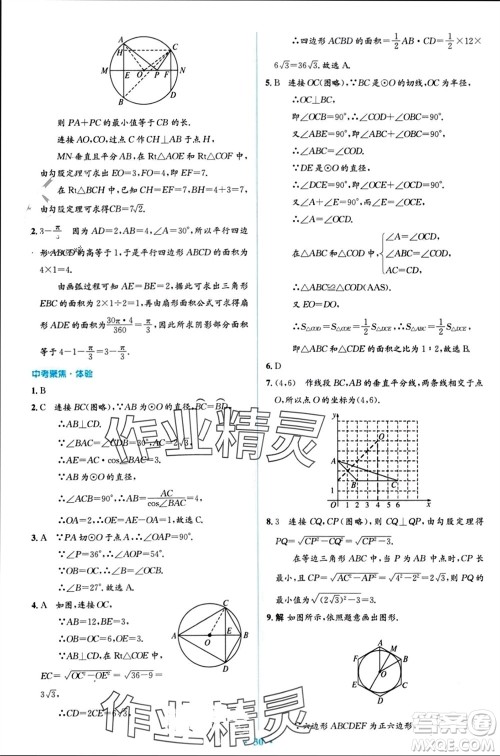 A
C
M
E
O
P
F
N
B
D
H
则 PA+PC 的最小值等于 CB 的长.
连接 AO,CO,过点 C 作 CH⊥AB 于点 H,
MN 垂直且平分 AB,在 Rt△AOE 和 Rt△COF 中,
由勾股定理可求出 EO=3,OF=4,即 EF=7.
在 Rt△BCH 中,BH=3+4=7,CH=EF=7,
由勾股定理可求出 CB=7√2.
3. 3-π/3 因为 AD=2,AB=4,∠A=30°,所以平行四边
形 ABCD 的高等于 1,于是平行四边形 ABCD 的面积为
4×1=4.
由画弧过程可知 AE=2,BE=2,由此可求出三角形
EBC 的面积为 2×1÷2=1,再由扇形面积公式可求出扇
形 ADE 的面积为 30π·4/360=π/3,因此所求阴影部分面积
等于 4-1-π/3=3-π/3.
中考聚焦·体验
1. B
2. C 连接 BC(图略),∵AB 是⊙O 的直径,
∴AB⊥CD.
∴∠BAC=∠CDB=30°,AC=2√3.
∴AE=AC·cos∠BAC=3.
∵AB 为⊙O 的直径,
∴∠ACB=90°,∴AB=AC/cos∠BAC=4.
∴OA=2,∴OE=AE-OA=1.故选 C.
3. A ∵PA 切⊙O 于点 A,∴∠OAP=90°.
∵∠P=36°,∴∠AOP=54°.
∵OB=OC,∴∠AOP=2∠B.
∴∠B=27°.故选 A.
4. A 如图,连接 OC,
∵AB=12,BE=3,
∴OB=OC=6,
OE=3.
∵AB⊥CD,
在 Rt△COE 中,
EC=√(OC²-OE²)=√(36-9)=
3√3,
C
A
O
E
B
D
∴CD=2CE=6√3.
∴四边形 ACBD 的面积=1/2AB·CD=1/2×12×
6√3=36√3.故选 A.
5. B 连接 OC(图略),∵BC 是⊙O 的切线,OC 为半径,
∴OC⊥BC,
即∠OCB=90°,∴∠COD+∠OBC=90°.
又∠ABE=90°,即∠ABC+∠OBC=90°,
∴∠ABC=∠COD.
∵DE 是⊙O 的直径,
∴∠DCE=90°,即∠OCE+∠OCD=90°.
又∠A+∠E=90°,而∠E=∠OCE,
∴∠A=∠OCD.
在△ABC 和△COD 中,
∠A=∠OCD,
∠ABC=∠COD,
AC=OC,
∴△ABC≌△COD(AAS).
又 EO=DO,
∴S△COD=S△COE=1/2S△DCE,
∴S△ABC=1/2S△DCE,
即△ABC 和△CDE 面积之比为 1∶2.故选 B.
6. D
7. (4,6) 作线段 BC,AB 的垂直平分线,两条线相交于点
(4,6),∴圆心的坐标为(4,6).
y
A
1
B
C
O
1 2 3 4 5 6
x
8. 3 连接 CQ,CP(图略),∵CQ⊥QP,由勾股定理得
PQ=√(CP²-CQ²)=√(CP²-3),
在等边三角形 ABC 中,当 CP⊥AB 时,
CP=√(AC²-AP²)=√((2√3)²-(√3)²)=3.
∴PQ 的最小值=√(9-3)=√6.
9. 解 如图所示,依照题意画出图形.
M
O
∵六边形 ABCDEF 为正六边形,
作业精灵
作业精灵